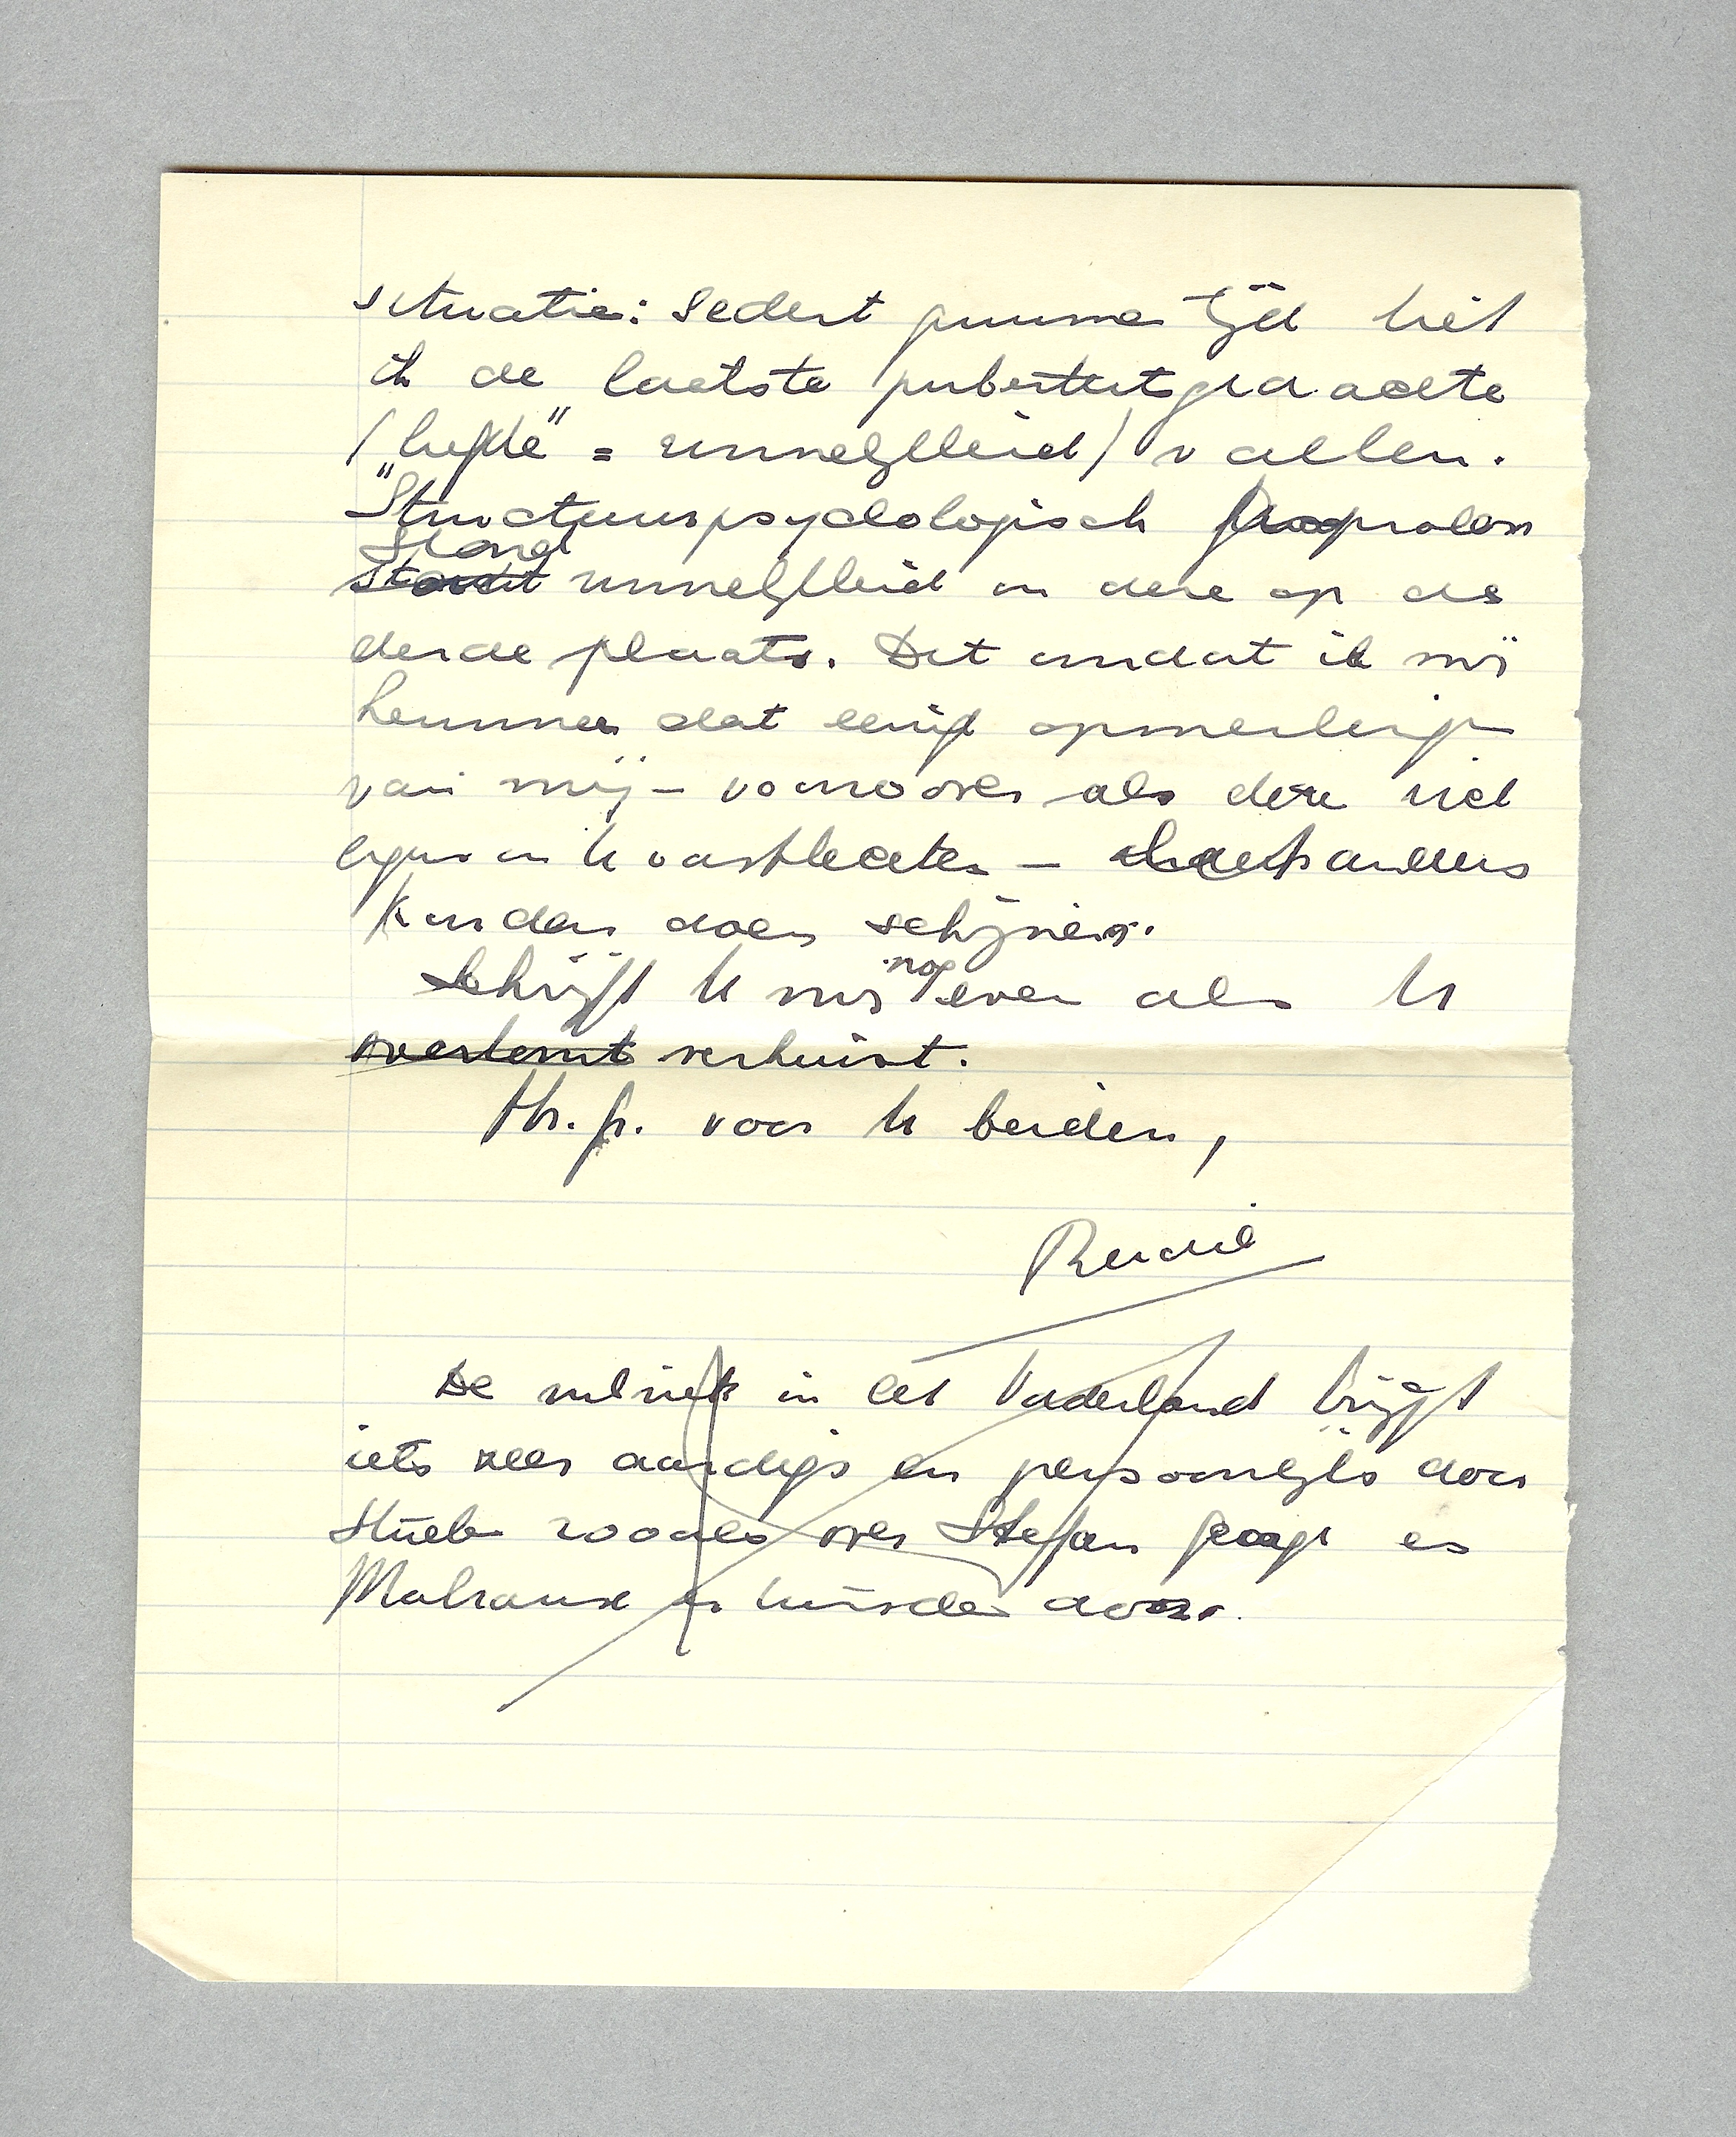 situatie: sedert geruime tijd liet
ik de laatste puberteitsgedachte
("liefde" = zinnelijkheid) vallen.
"Structuurpsychologisch gesproken
Stond zinnelijkheid in deze op de
derde plaats. Dit omdat ik mij
herinner dat eenige opmerkingen
van mij – vooral als deze niet
in U vasthechtten – anders
kunden doen schijnen.
Schrijft U mij nog even als U
overkomt verhuist.
Hr. gr. voor U beiden,
Rudie
De rubriek in het Vaderland krijgt
iets zeer aardigs en persoonlijks door
Stukken zooals over Stefan George en
Malraux en hunder door.